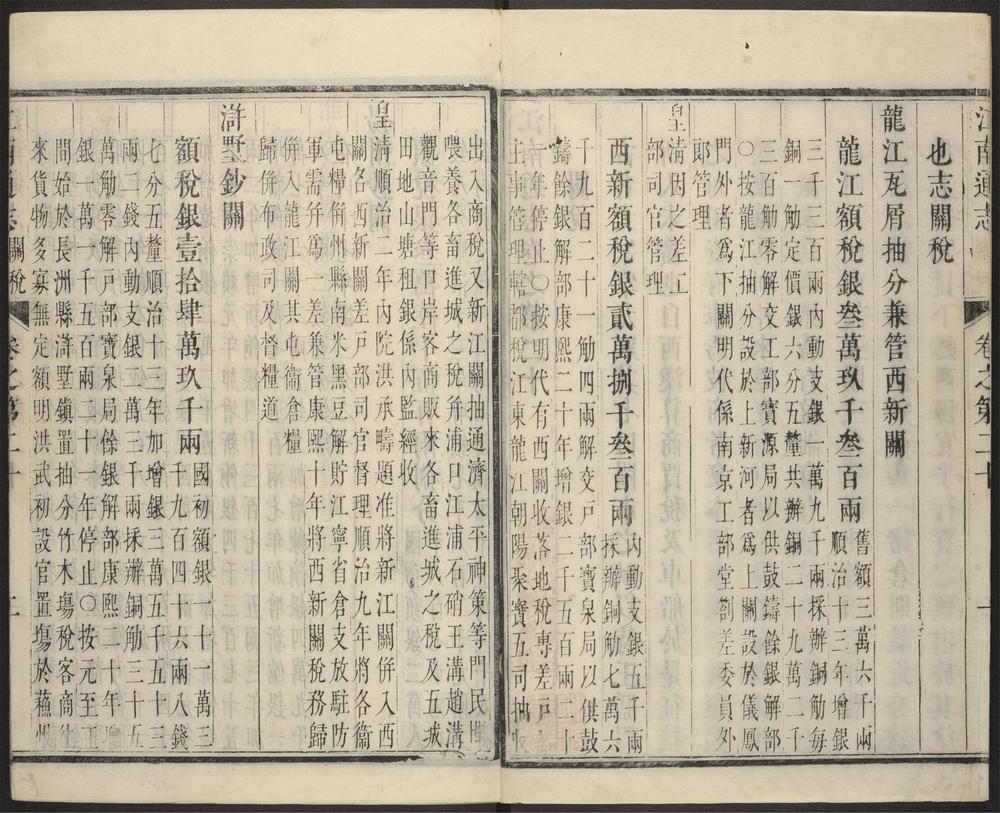 江南通志
卷之第二十
一
也志關稅
龍江瓦屑抽分兼管西新關
龍江額稅銀叁萬玖千叁百兩
舊額三萬六千兩
順治十三年增銀
三千三百兩內動支銀一萬九千兩採辦銅觔每
銅一觔定價銀六分五釐共辦銅二十九萬二千
三百觔零解交工部寶源局以供鼓鑄餘銀解部
○按龍江抽分設於上新河者爲上關設於儀鳳
門外者爲下關明代係南京工部堂劄差委員外
郎管理
皇清因之差工
部司官管理
西新額稅銀貳萬捌千叁百兩
內動支銀五千兩
採辦銅觔七萬六
千九百二十一觔四兩解交戶部寶泉局以供鼓
鑄餘銀解部康熙二十年增銀二千五百兩二十
一年停止○按明代有西關收落地稅專差戶部
主事管理轄都稅江東龍江朝陽聚寶五司抽收
出入商稅又新江關抽通濟太平神策等門民間
喂養各畜進城之稅并浦口江浦石硝王溝趙溝
觀音門等口岸客商販來各畜進城之稅及五城
田地山塘租銀係內監經收
皇清順治二年內院洪承疇題准將新江關併入西
關名西新關差戶部司官督理順治九年將各衞
屯糧衞州縣南米黑豆解貯江寧省倉支放駐防
軍需并爲一差兼管康熙十年將西新關稅務歸
併入龍江關其屯衞倉糧
歸併布政司及督糧道
滸墅鈔關
額稅銀壹拾肆萬玖千兩
國初額銀一十一萬三
千九百四十六兩八錢
七分五釐順治十三年加增銀三萬五千五十三
兩一錢內動支銀三千兩採辦銅觔三十五
萬觔零解戶部寶泉局餘銀解部康熙二十年增
銀一萬一千五百兩二十一年停止○按元至正
間始於長洲縣滸墅鎮置抽分竹木場稅客商往
來貨物多寡無定額明洪武初設官置塲於蘓州
江南通志
關稅
卷之第二十
二